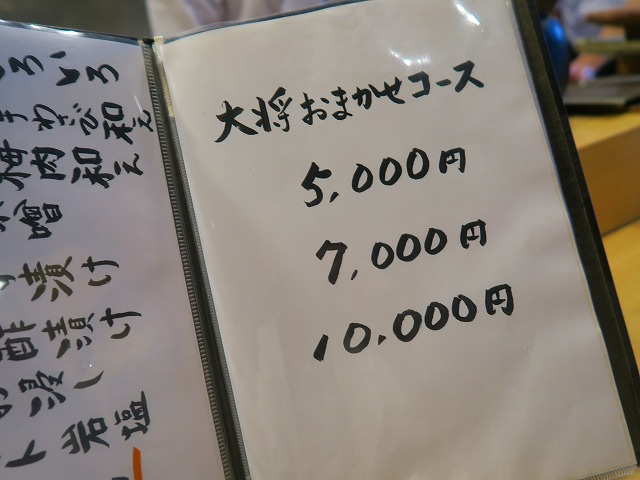 いろいろ
わさび和え
梅肉和え
噌
漬け
酢漬け
浸し
ト 岩塩
大将おまかせコース
5,000円
7,000円
10,000円